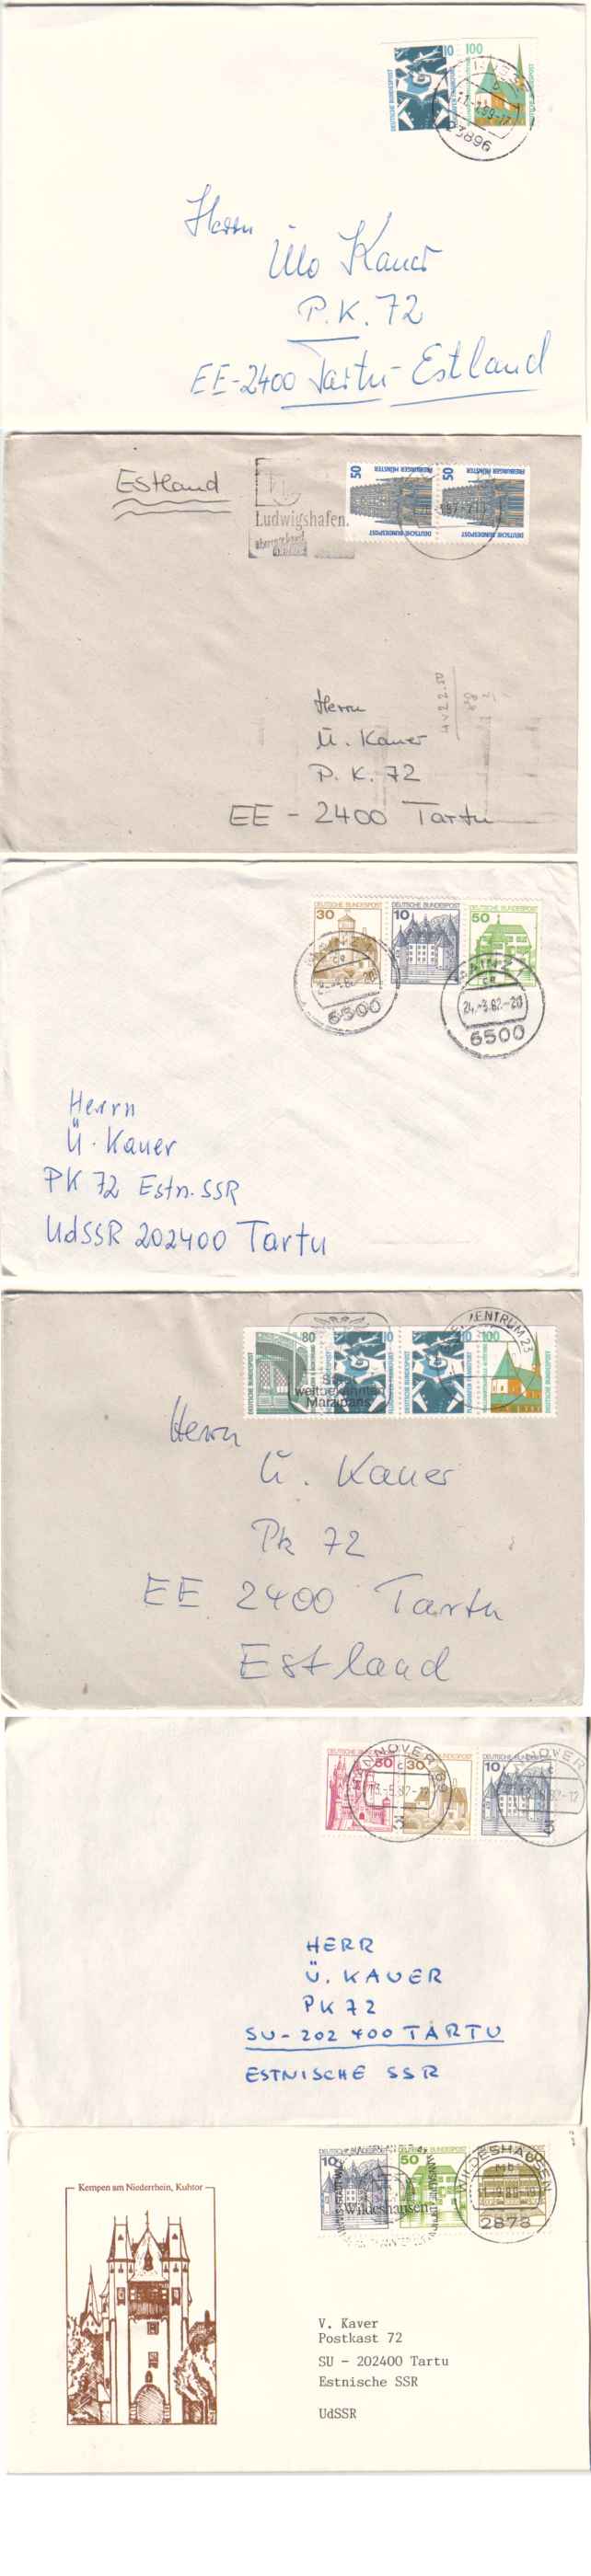 10 100
DEUTSCHE BUNDESPOST
23896
Herrn
Ülo Kauer
P.K. 72
EE-2400 Tartu - Estland
Estland
Ludwigshafen.
50 FREIBURGER MÜNSTER 50 FREIBURGER MÜNSTER
DEUTSCHE BUNDESPOST DEUTSCHE BUNDESPOST
Herrn
Ü. Kauer
P. K. 72
EE - 2400 Tartu
DEUTSCHE BUNDESPOST DEUTSCHE BUNDESPOST DEUTSCHE BUNDESPOST
30 10 50
MAINZ
24.-3.82-20
6500 6500
Herrn
Ü. Kauer
PK 72 Estn. SSR
UdSSR 202400 Tartu
80 10 10 100
BRIEFZENTRUM 23
weltbekannten
Marzipans
Herrn
Ü. Kauer
Pk 72
EE 2400 Tartu
Estland
50 30 10
HANNOVER HANNOVER
13.-5.82-12
3 3
HERR
Ü. KAUER
PK 72
SU-202 400 TARTU
ESTNISCHE SSR
10 50 60
Wildeshausen
WILDESHAUSEN
mb
2878
Kempen am Niederrhein, Kuhtor
V. Kaver
Postkast 72
SU - 202400 Tartu
Estnische SSR
UdSSR